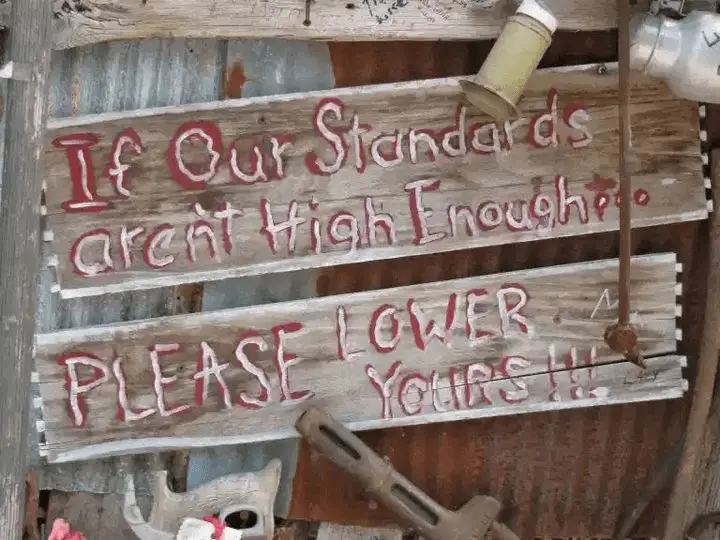 If Our Standards
aren't High Enough...
PLEASE LOWER
YOURS!!!